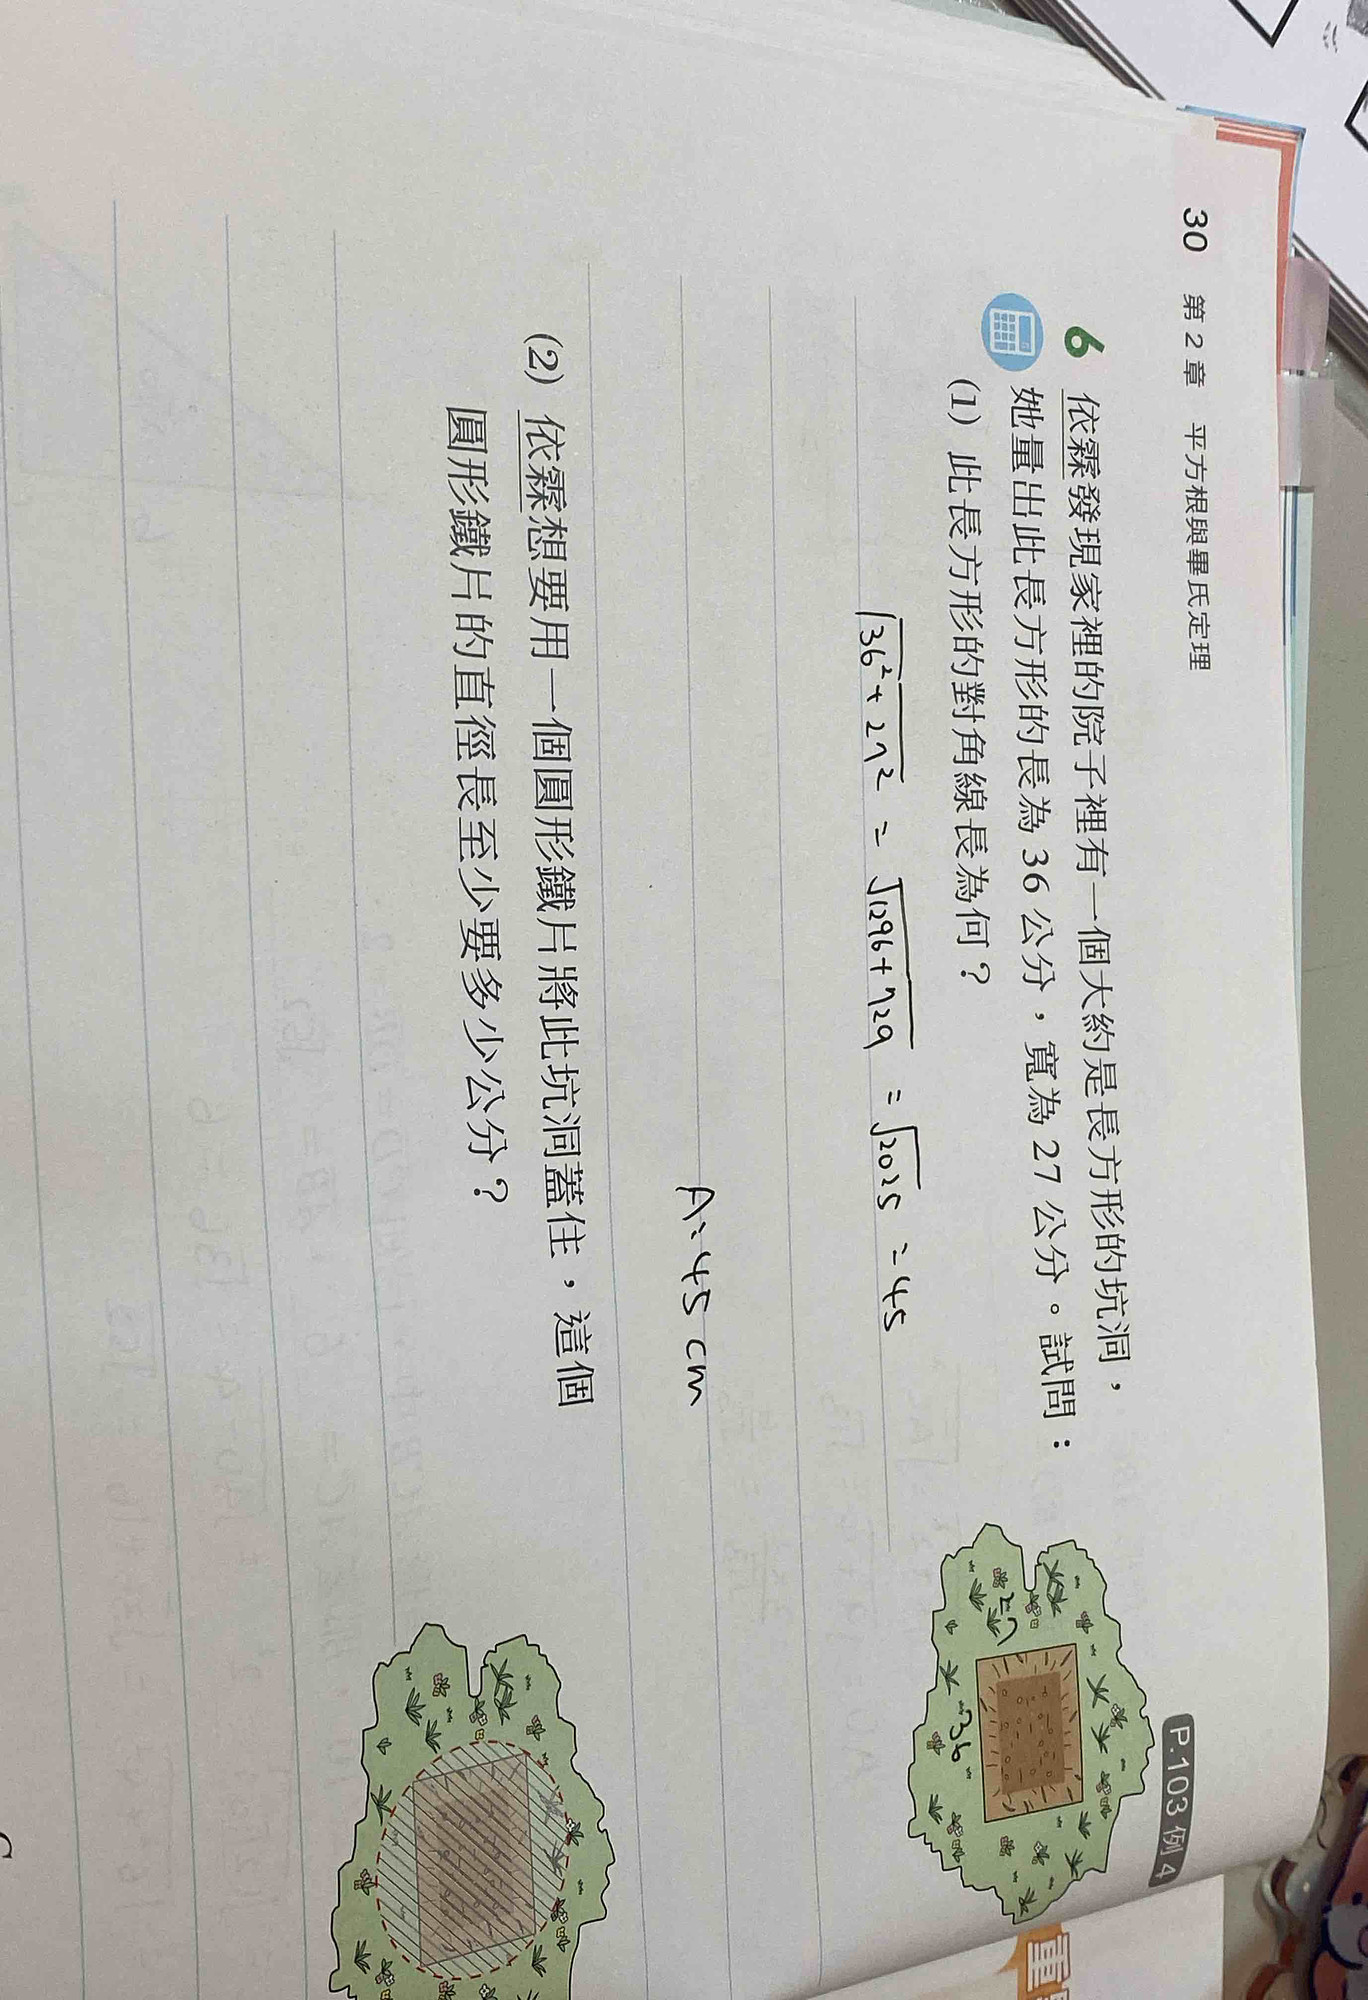 30 第 2 章 平方根與畢氏定理
P.103 例 4
6 依霖發現家裡的院子裡有一個大約是長方形的坑洞，
她量出此長方形的長為 36 公分，寬為 27 公分。試問：
(1) 此長方形的對角線長為何？
27
36
√36²+27² = √1296+729 = √2025 = 45
A:45 cm
(2) 依霖想要用一個圓形鐵片將此坑洞蓋住，這個
圓形鐵片的直徑長至少要多少公分？